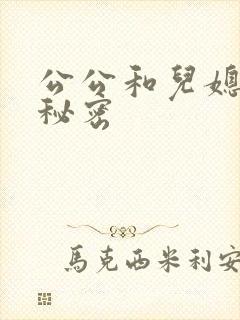 公公和兒媳
秘密
馬克西米利安